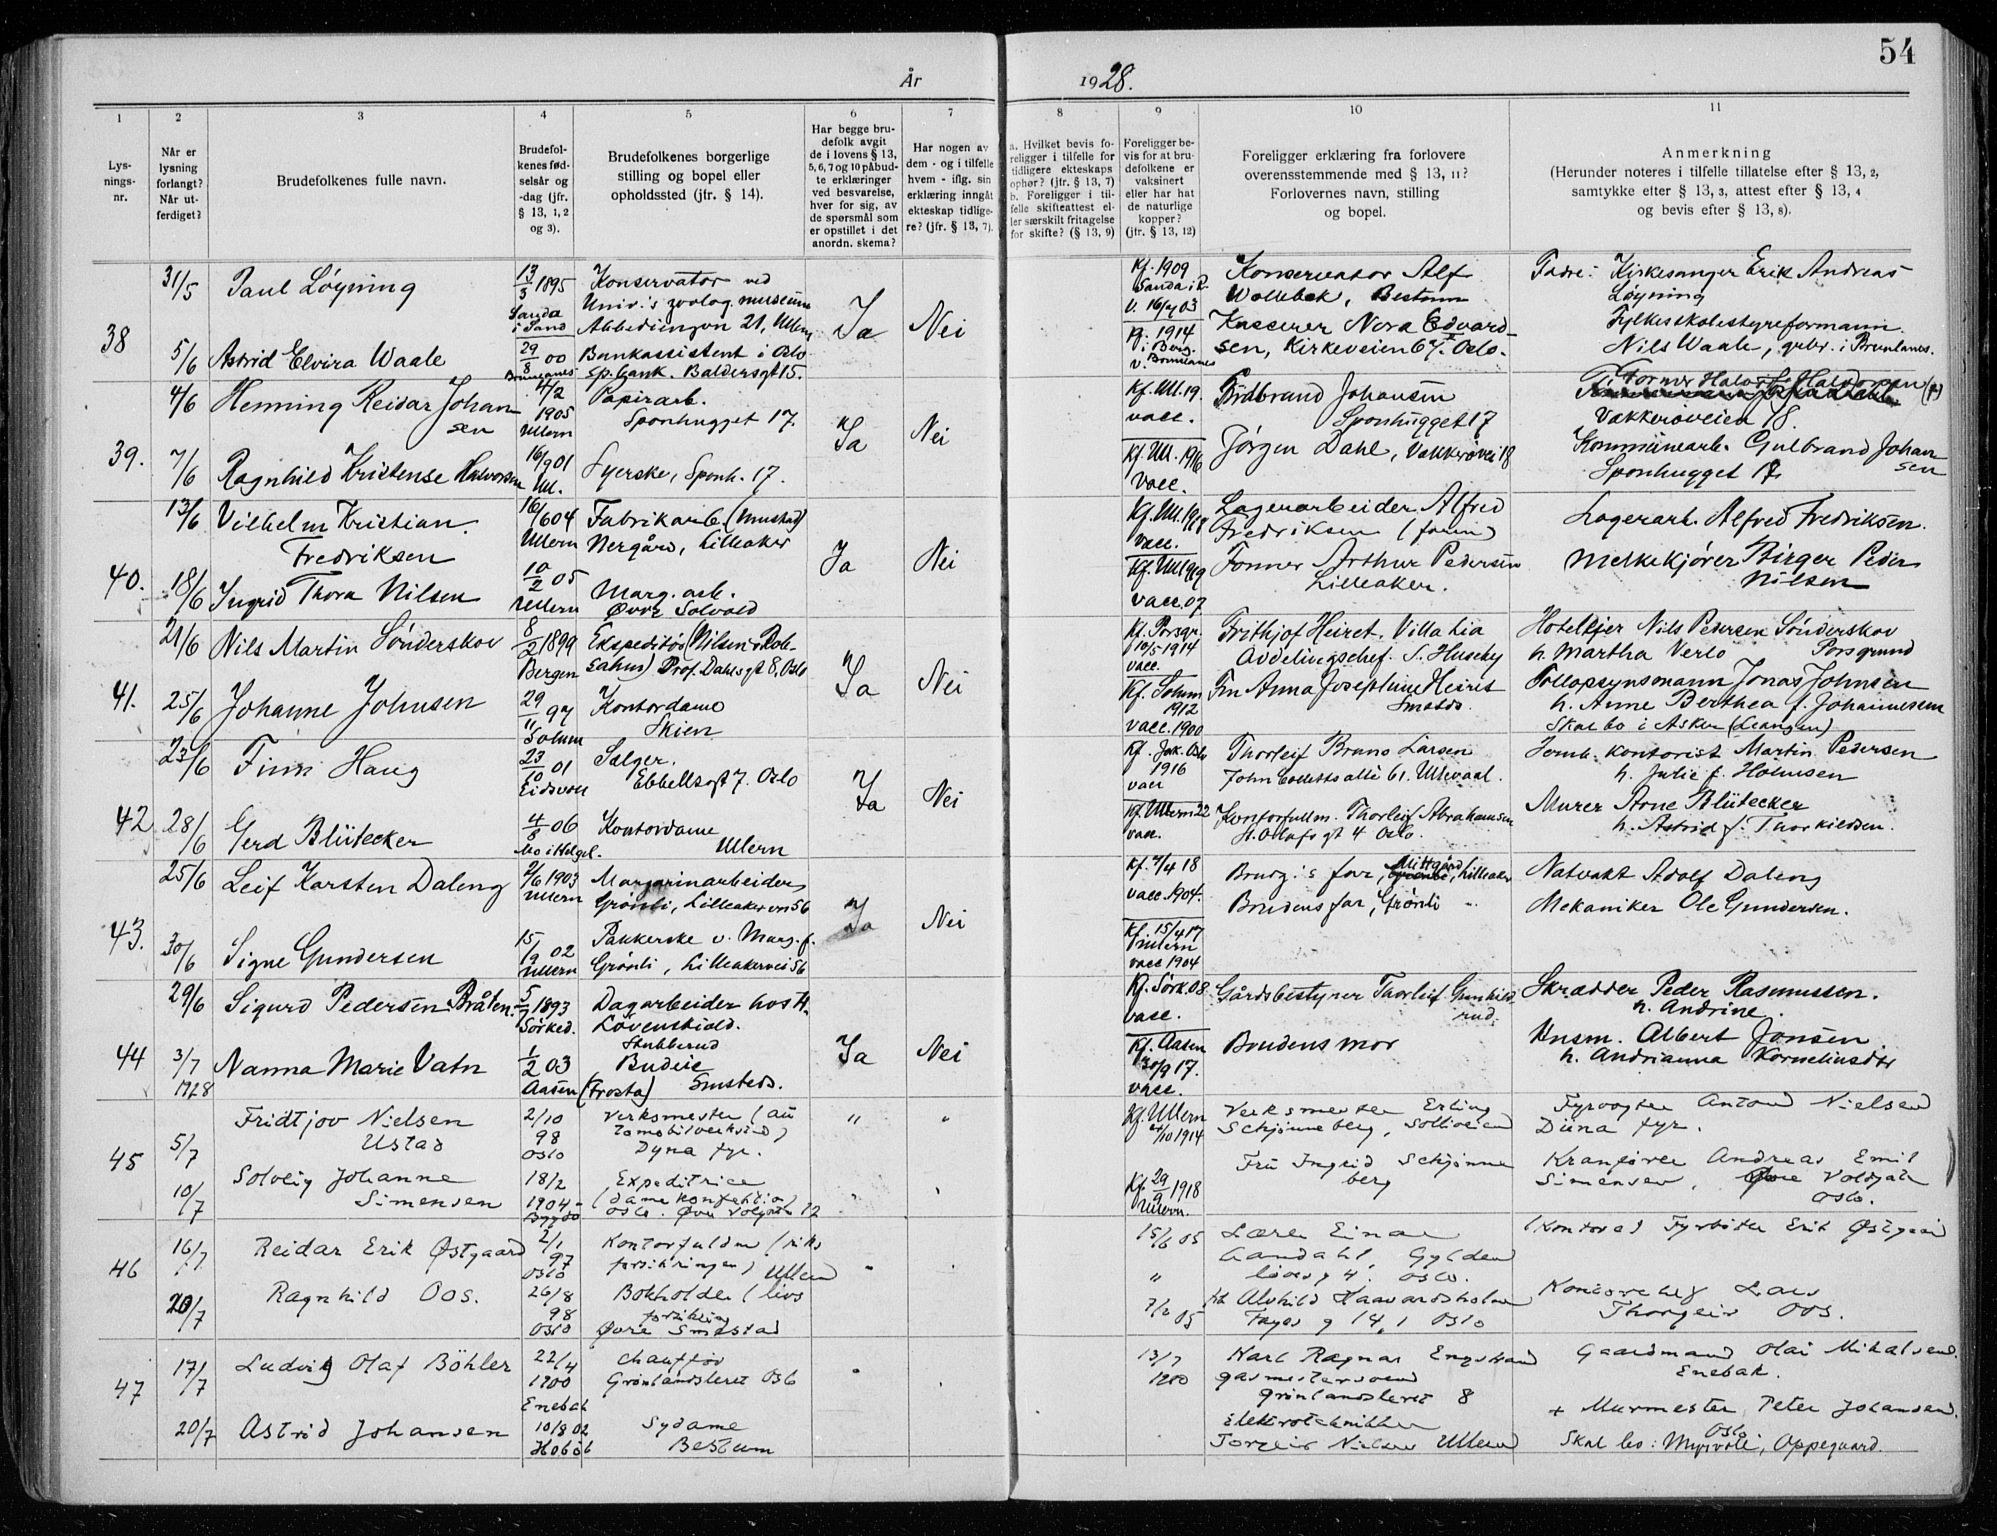 54
År 1928.
1 2 3 4 5 6 7 8 9 10 11
Lys-
nings-
nr.
Når er
lysning
forlangt?
Når ut-
ferdiget?
Brudefolkenes fulle navn.
Brudefol-
kenes fød-
selsår og
-dag (jfr.
§ 13, 1, 2
og 3).
Brudefolkenes borgerlige
stilling og bopel eller
opholdssted (jfr. § 14).
Har begge bru-
defolk avgit
de i lovens § 13,
5, 6, 7 og 10 påbud-
te erklæringer
ved besvarelse,
hver for sig, av
de spørsmål som
er opstillet i det
anordn. skema?
Har nogen av
dem - og i tilfelle
hvem - iflg. sin
erklæring inngått
ekteskap tidlige-
re? (jfr. § 13, 7).
a. Hvilket bevis fo-
religger i tilfelle for
tidligere ekteskaps
ophør? (§ 13, 7)
b. Foreligger i til-
felle skifteattest el-
ler særskilt fritagelse
for skifte? (§ 13, 9)
Foreligger be-
vis for at bru-
defolkene er
vaksinert
eller har hat
de naturlige
kopper?
(jfr. § 13, 12)
Foreligger erklæring fra forlovere
overensstemmende med § 13, 11?
Forlovernes navn, stilling
og bopel.
Anmerkning
(Herunder noteres i tilfelle tillatelse efter § 13, 2,
samtykke efter § 13, 3, attest efter § 13, 4
og bevis efter § 13, 8).
38
31/5 Paul Løyning
13/3 1895
Sauda
i Sand
Konservator ved
Univ.'s zoolog. museum
Abbediengen 21, Ullern
Ja Nei
Kf. 1909
Sanda i R.
V. 16/7 03
Konservator Alf
Wollebæk, Bestum
Fadre: Kirkesanger Erik Andreas
Løyning
5/6 Astrid Elvira Waale
29/8 00
Brunlanes
Bankassistent i Oslo
sp.bank. Baldersgt 15.
Kf. 1914
i Berg.
v. Brunlanes
Kasserer Nora Edvard-
sen, Kirkeveien 67. Oslo.
Fylkesskolestyreformann
Nils Waale, grbr. i Brunlanes.
39.
4/6 Henning Reidar Johan
sen
4/2
1905
Ullern
Papirarb.
Sponhugget 17.
Ja Nei
Kf. Ull. 19
vacc.
Johansen
Sponhugget 17
Vækkerøveien 18.
7/6 Ragnhild Kristense Halvorsen
16/9 01
Ull.
Syerske, Sponh. 17.
Kf. Ull. 1916
vacc.
Jørgen Dahl, Vækkerøvei 18
Kommunearb. Gulbrand Johan
sen
Sponhugget 17.
40.
13/6 Vilhelm Kristian
Fredriksen
16/6 04
Ullern
Fabrikarb. (Mustad)
Nergård, Lilleaker
Ja Nei
Kf. Ull. 1919
vacc.
Lagerarbeider Alfred
Fredriksen (farin)
Lagerarb. Alfred Fredriksen.
18/6 Ingrid Thora Nilsen
10/2 05
Ullern
Marg. arb.
Øvre Solvold
Kf. Ull. 1919
vacc. 07
Former Arthur Pedersen
Lilleaker.
Melkekjører Birger Peder
Nilsen
41.
21/6 Nils Martin Sønderskov
8/2 1899
Bergen
Ekspeditør (Nilsen & Rob-
sahm) Prof. Dahlsgt 8, Oslo
Ja Nei
Kf. Porsgr.
10/5 1914
vacc.
Frithjof Heiret. Villa Lia
Avdelingschef. S. Huseby
Hotelleier Nils Pedersen Sønderskov
h. Martha Verlo Porsgrund
25/6 Johanne Johnsen
29/11 97
Solum
Kontordame
Skien
Kf. Solum
1912
vacc. 1900
Fru Anna Josephine Heiret
Smstds.
Tollopsynsmann Jonas Johnsen
h. Anne Berthea f. Johannesen
Skal bo i Asker (Leangen)
42
23/6 Finn Haug
23/10 01
Eidsvoll
Selger.
Ebbellsgt 7. Oslo
Ja Nei
Kf. Jak. Oslo
1916
vacc
Thorleif Bruno Larsen
John Colletts allé 61. Ullevaal.
Jernb. kontorist Martin Pedersen
h. Julie f. Holmsen
28/6 Gerd Blütecker
4/8 06
Mo i Helgel.
Kontordame
Ullern
Kf. Ullern 22
vacc.
Kontorfullm. Thorleif Abrahamsen
St. Olafs gt 4 Oslo.
Murer Arne Blütecker
h. Astrid f. Thorkildsen.
43.
25/6 Leif Karsten Daleng
2/6 1903
Ullern
Margarinarbeider
Grønli, Lilleakervei 56
Ja Nei
Kf. 7/4 18
vacc. 1904.
Brudg.'s far, Midtgård, Lilleaker
Natvakt Adolf Daleng
30/6 Signe Gundersen
15/9 02
Ullern
Pakkerske v. Marg. f.
Grønli, Lilleakervei 56
Kf. 15/4 17
Ullern
vacc 1904
Brudens far, Grønli "
Mekaniker Ole Gundersen.
44
29/6 Sigurd Pedersen Bråten.
5/7 1893
Sørked.
Dagarbeider hos H.
Løvenskiold.
Stubberud
Ja Nei
Kf. Sørk. 08
vacc.
Gårdsbestyrer Thorleif Gunhilds
rud.
Skrædder Peder Rasmussen.
h. Andrine.
3/7
1928
Nanna Marie Vatn
1/2 03
Aasen (Frosta)
Budeie
Smsteds.
Kf. Aasen
30/9 17.
vacc.
Brudens mor
Husm. Albert Jonsen.
h. Andrianna Korneliusdtr
45
5/7 Fridtjov Nielsen
Ustad
2/10
98
Oslo
Verksmester (au
tomobilverksted)
Dyna fyr.
" "
Kf. Ullern
1914
Verksmester Erling
Schjønneberg, Solliveien
Fyrvogter Antond Nielsen
Dyna fyr.
10/7 Solveig Johanne
Simensen
18/2
1904
Bygdø
Expeditrice
(dame konfektion)
Oslo. Øvre Vollgate 12
Kf. 29/9 1918
Ullern.
Fru Ingrid Schjønne
berg
Kranfører Andreas Emil
Simensen, Øvre Voldgate
Oslo.
46
16/7 Reidar Erik Østgaard
2/1
97
Oslo
Kontorfuldm (riks
forsikringen) Ullern
15/6 05
Lærer Einar
Aandahl, Gylden
løves g 4. Oslo.
(Kontora) Fyrbøter Erik Østgaard
20/7 Ragnhild Oos.
26/8
98
Oslo
Bokholder (livs
forsikring
Øvre Smestad
"
7/2 05
frk Alvhild Haavardsholm
Fayes g 14, 1 Oslo
Kontorchef Lars
Thorgeir Oos.
47
17/7 Ludvig Olaf Böhler
22/4
1900
Enebak
Chauffør
Grønlandsleret Oslo
13/7
1900
Karl Ragnar Engstrand
gasmestersvend
Grønlandsleret 8
Gaardmand Olai Mikalsend.
Enebak.
20/7 Astrid Johansen
10/8 02
Hobøl
Sydame
Bestum
Elektrotekniker
Torgeir Nielsen Ullern
+ Murmester Peter Johansen.
Oslo
Skal bo: Myrvoll, Oppegaard.